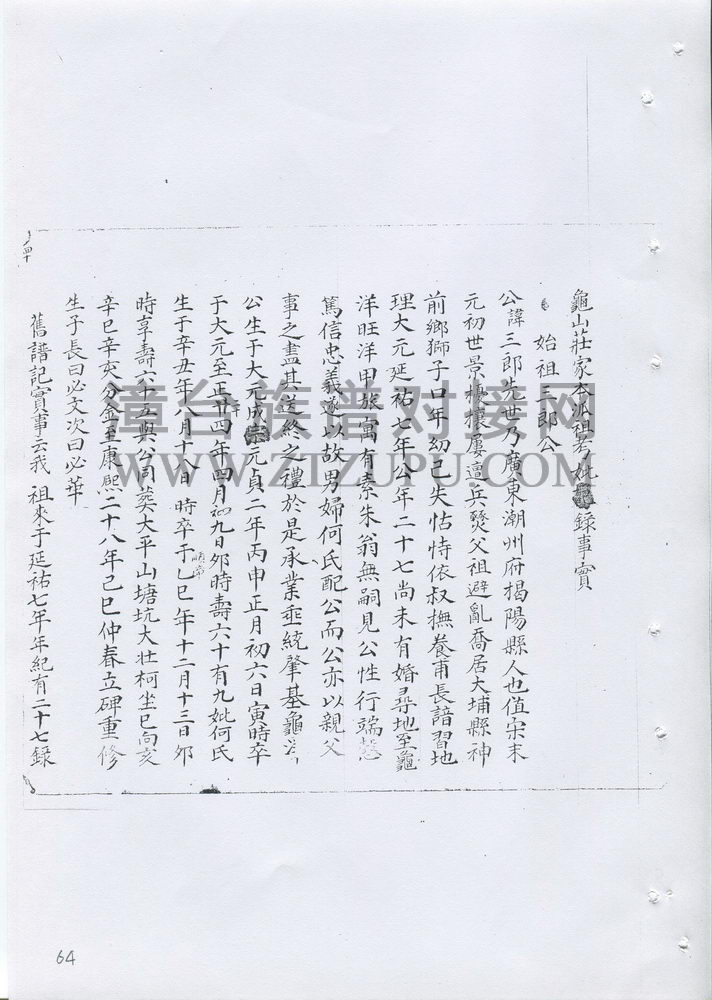 龜山莊家本派祖考妣錄事實
始祖三郎公
公諱三郎先世乃廣東潮州府揭陽縣人也值宋末
元初世景擾攘屢遭兵燹父祖避亂喬居大埔縣神
前鄉獅子口年幼已失怙恃依叔撫養甫長諳習地
理大元延祐七年公年二十七尚未有婚尋地至龜
洋旺洋甲旅寓有素朱翁無嗣見公性行端愨
篤信忠義遂以故男婦何氏配公而公亦以親父
事之盡其送終之禮於是承業垂統肇基龜洋
公生于大元成宗元貞二年丙申正月初六日寅時卒
于大元至正廿四年四月初九日卯時壽六十有九妣何氏
生于辛丑年八月十八日 時卒于乙巳年十二月十三日卯
時享壽六十五與公同葬大平山塘坑大壯柯坐巳向亥
辛巳辛亥分金至康熙二十八年己巳仲春立碑重修
生子長曰必文次曰必華
舊譜記實事云我 祖來于延祐七年年紀有二十七錄
漳台族谱对接网
WWW.ZTZUPU.COM
64